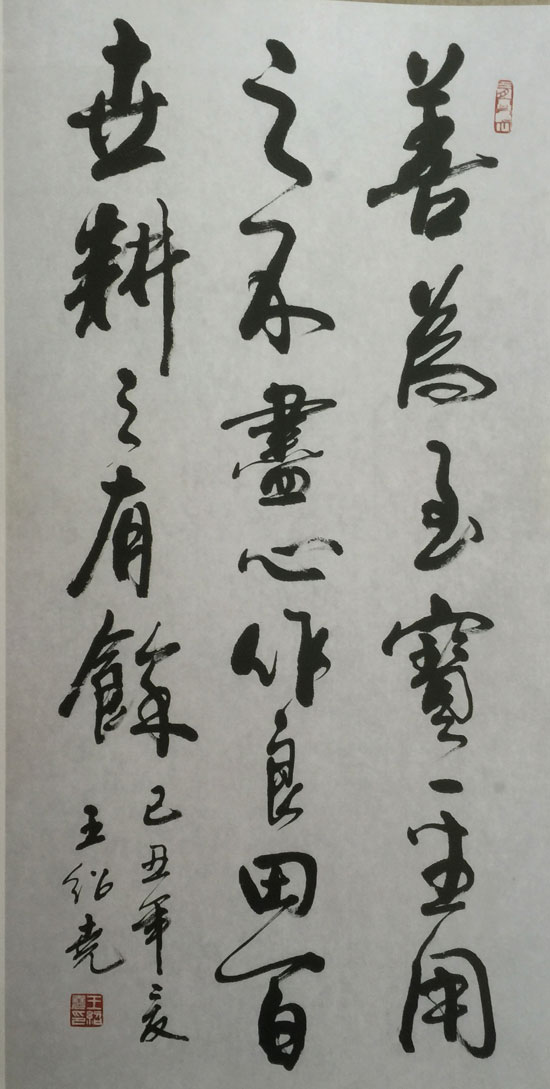 善為至寶一生用
之不盡心作良田百
世耕之有餘
己丑年夏
王紹堯